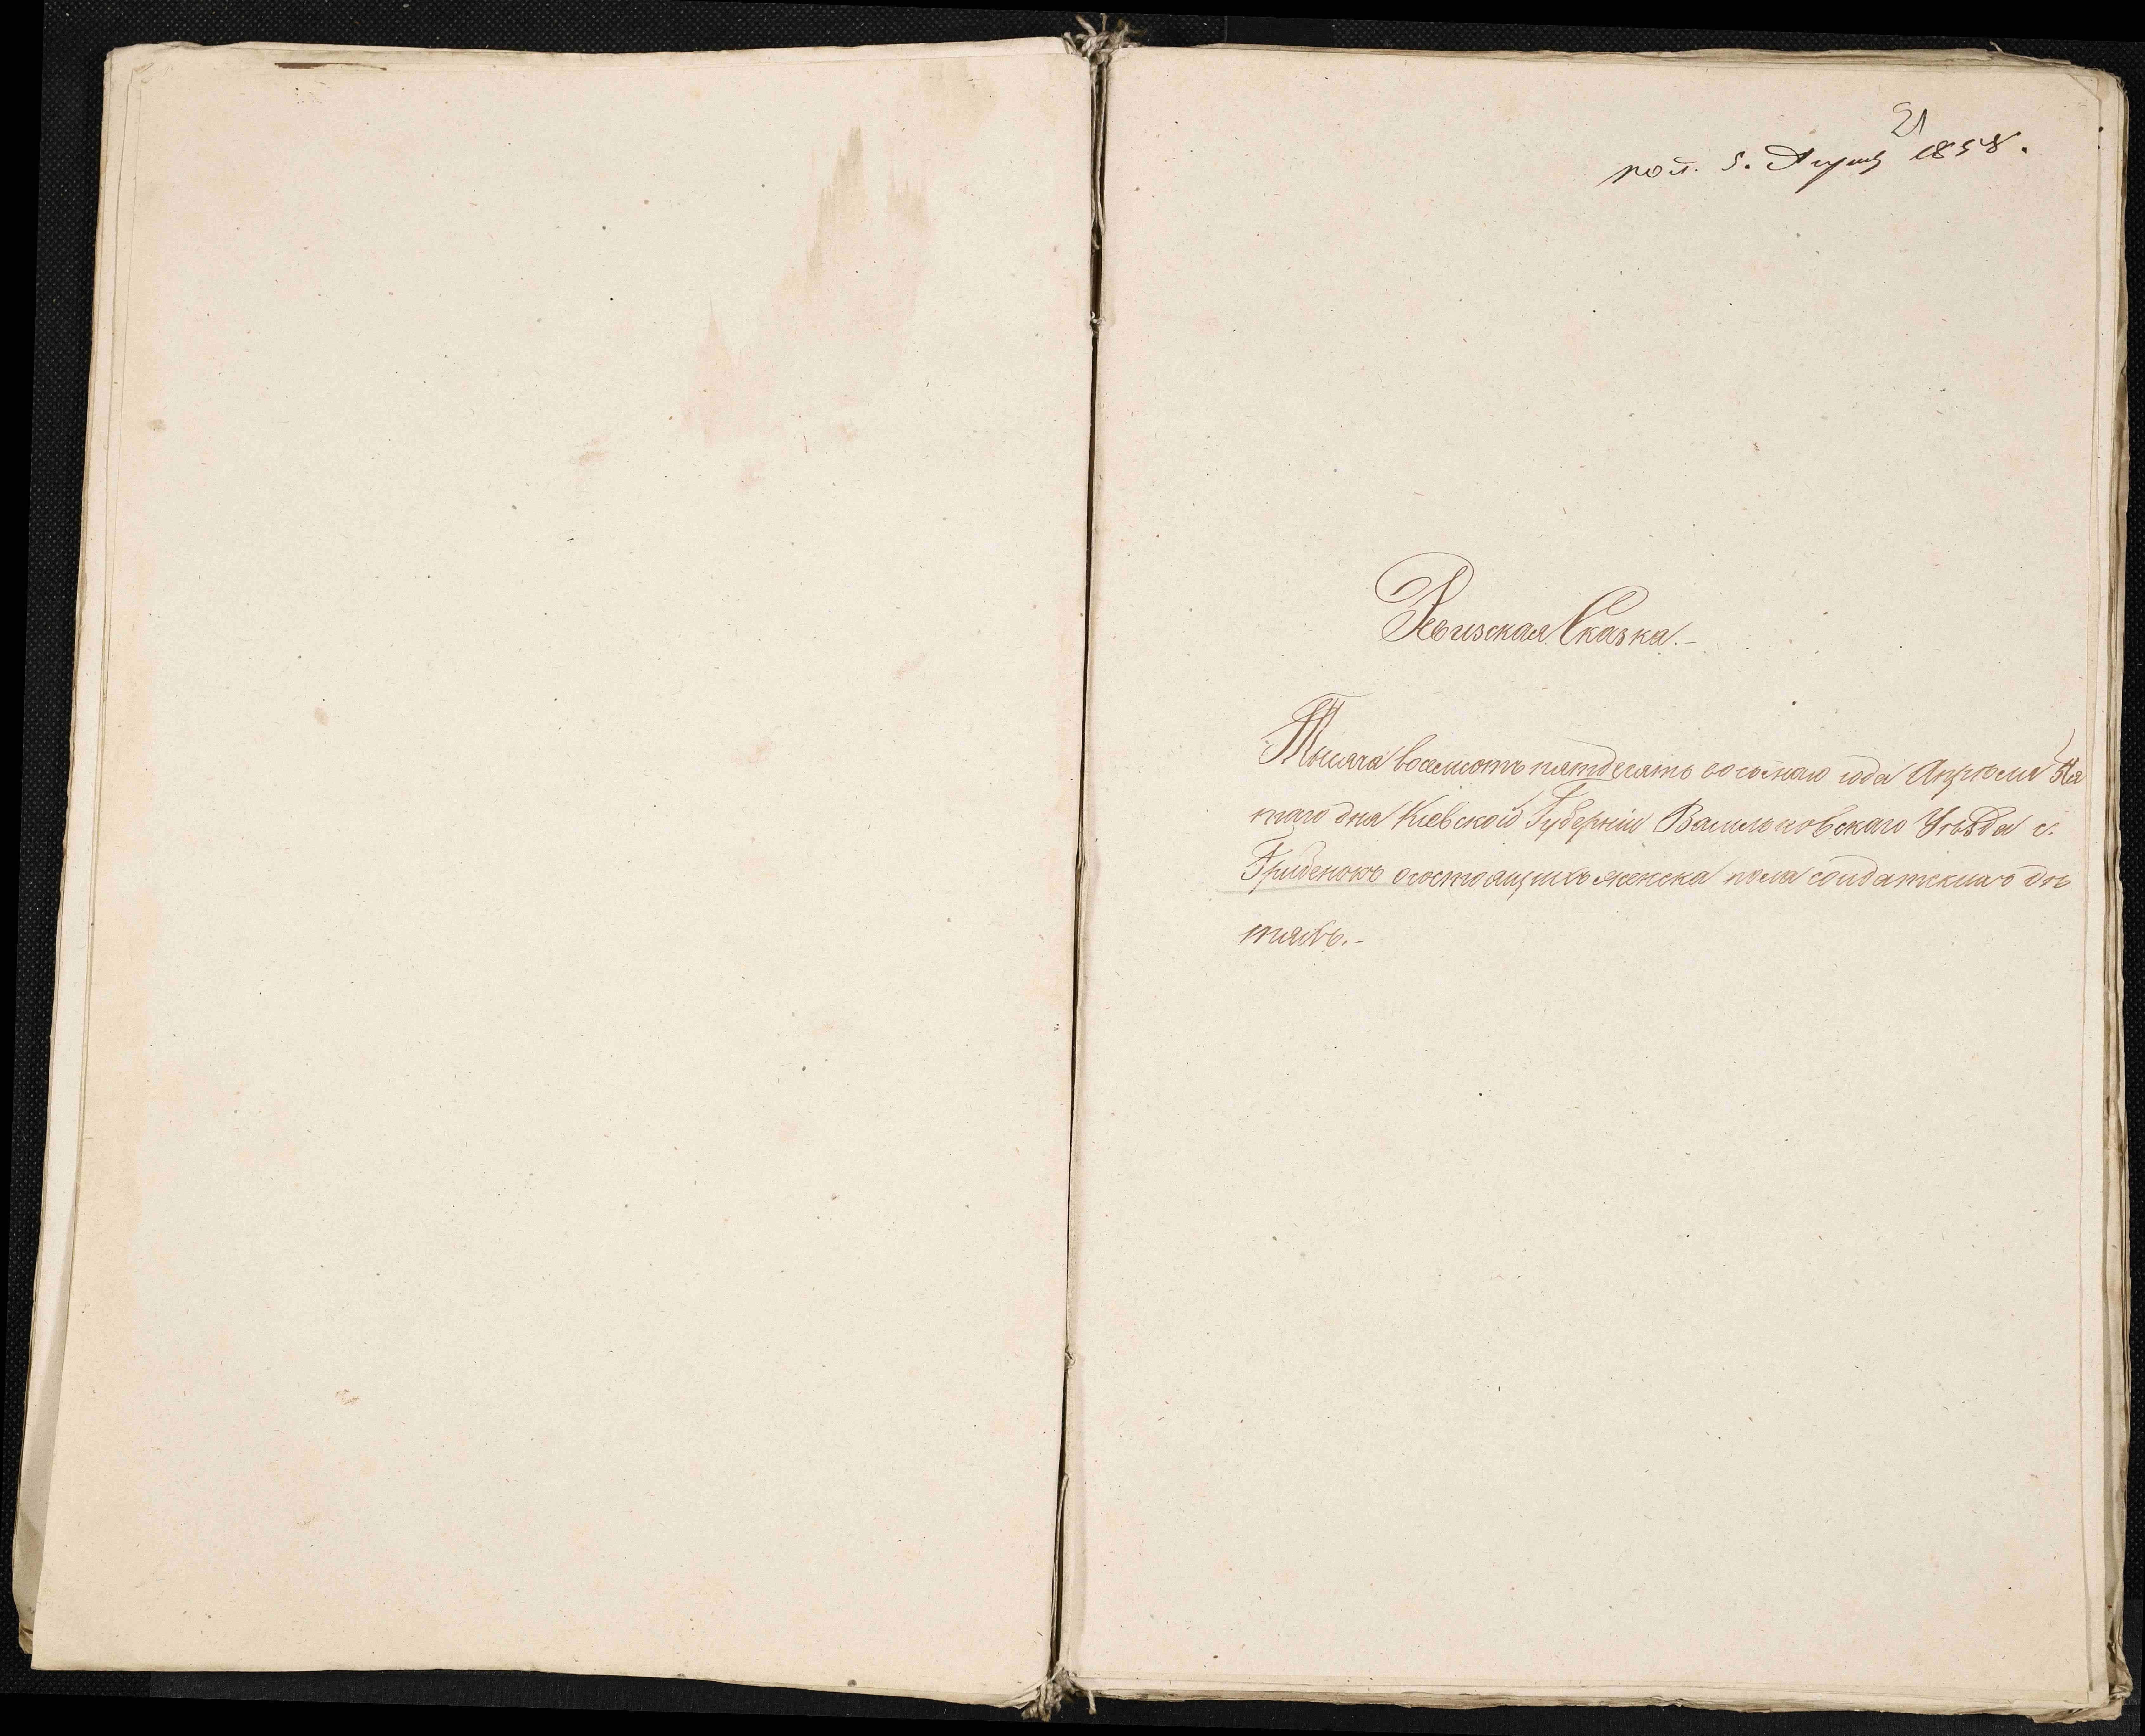 21
пол. 5. Апреля 1858.
Ревизская Сказка.-
Тысяча восемсотъ пятдесятъ восьмаго года Апрѣля Пя
таго дня Кіевской Губерніи Васильковскаго Уѣзда с.
Гребенокъ осостоящихъ женска пола солдатскихъ дѣ
тяхъ.-